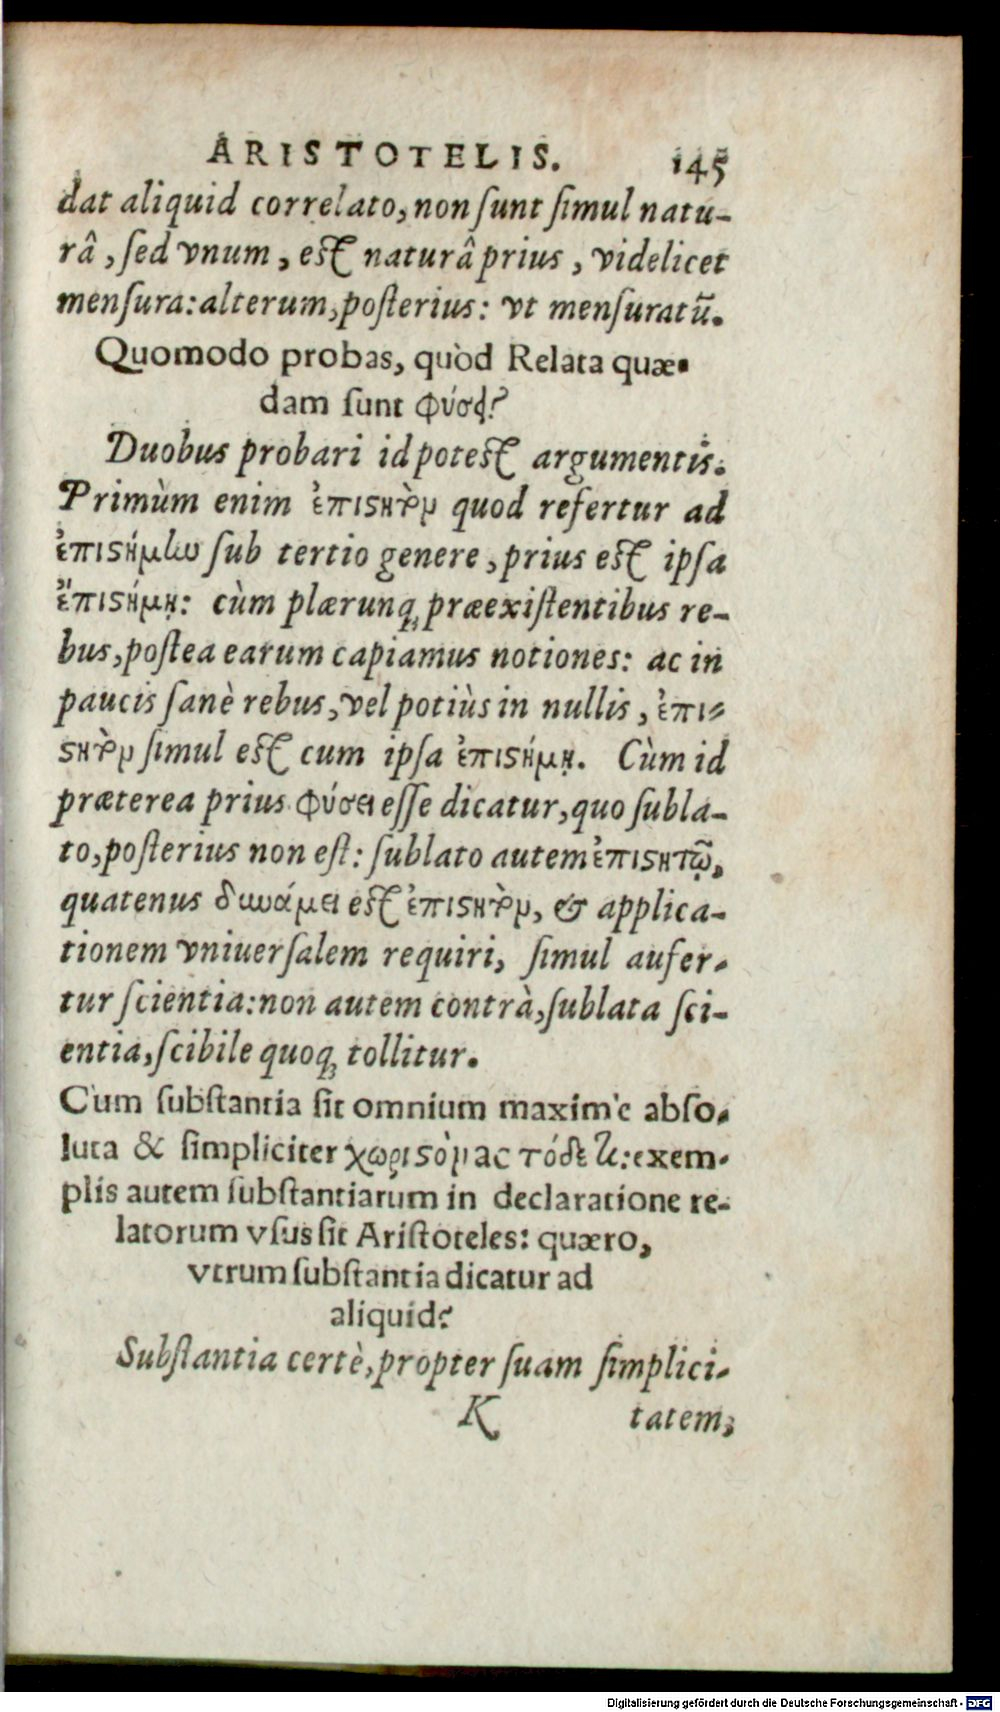 ARISTOTELIS. 145
dat aliquid correlato, non sunt simul natu-
râ, sed vnum, est naturâ prius, videlicet
mensura: alterum, posterius: vt mensuratũ.
Quomodo probas, quòd Relata quæ-
dam sunt φύσει?
Duobus probari id potest argumentis.
Primùm enim ἐπιστητὸν quod refertur ad
ἐπιστήμην sub tertio genere, prius est ipsa
ἐπιστήμῃ: cùm plærunq; præexistentibus re-
bus, postea earum capiamus notiones: ac in
paucis sanè rebus, vel potiùs in nullis, ἐπι-
στητὸν simul est cum ipsa ἐπιστήμῃ. Cùm id
præterea prius φύσει esse dicatur, quo subla-
to, posterius non est: sublato autem ἐπιστητῷ,
quatenus δυνάμει est ἐπιστητὸν, & applica-
tionem vniuersalem requiri, simul aufer-
tur scientia: non autem contrà, sublata sci-
entia, scibile quoq; tollitur.
Cùm substantia sit omnium maximè abso-
luta & simpliciter χωριστὸν ac τόδε τι: exem-
plis autem substantiarum in declaratione re-
latorum vsus sit Aristoteles: quæro,
vtrum substantia dicatur ad
aliquid?
Substantia certè, propter suam simplici-
K tatem,
Digitalisierung gefördert durch die Deutsche Forschungsgemeinschaft - DFG